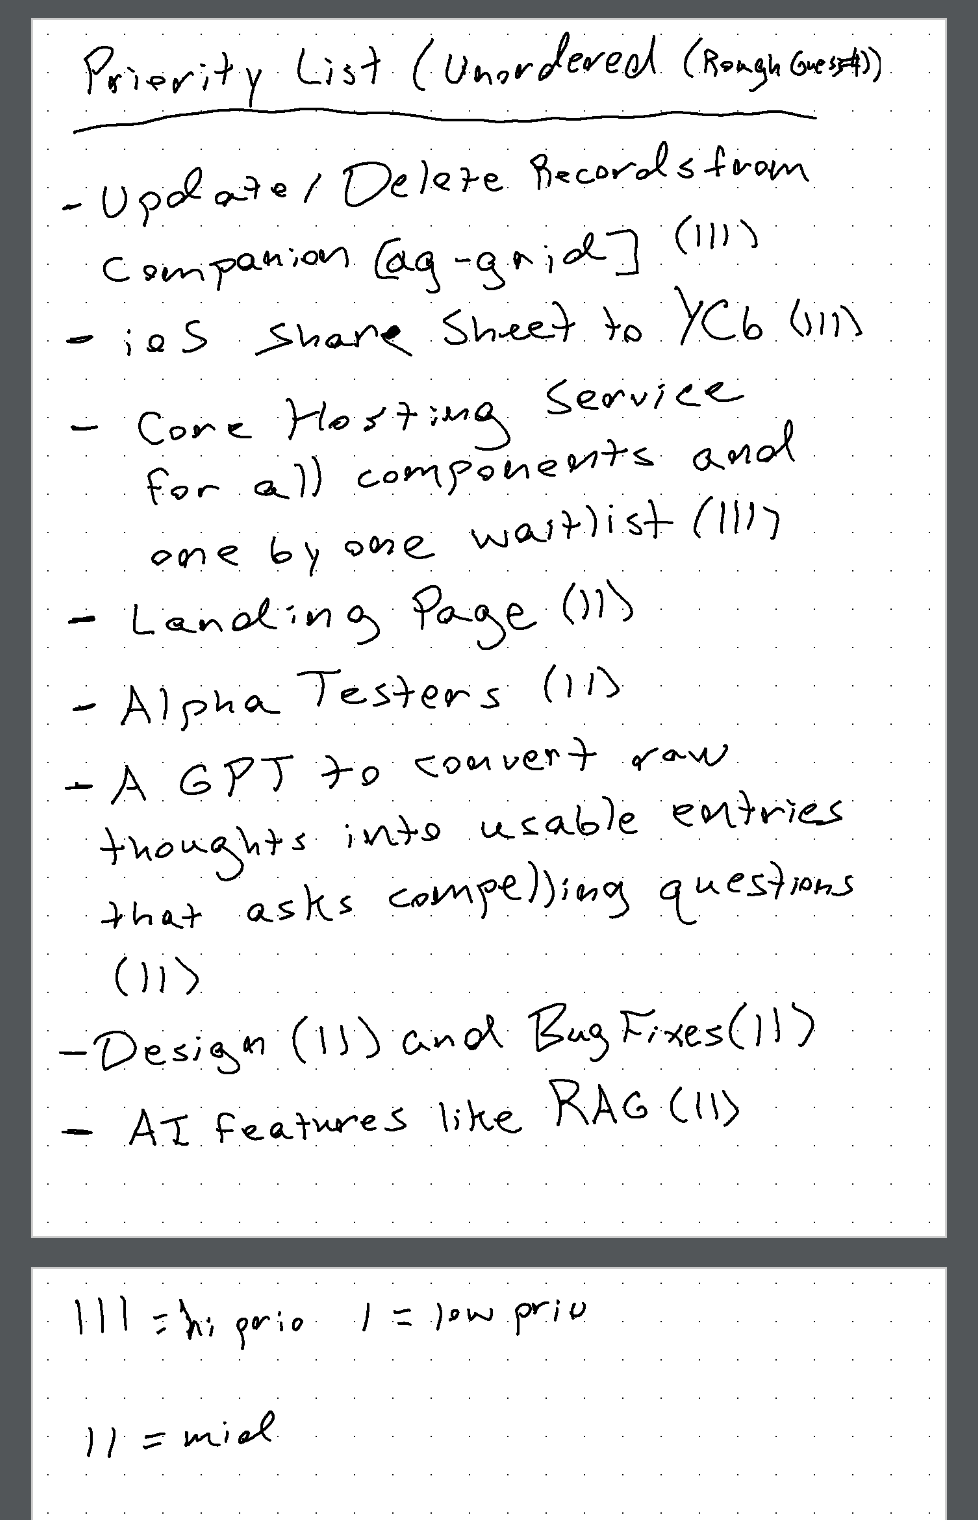 Priority List (Unordered (Rough Guess#))
- Update / Delete Records from
Companion [ag-grid] (III)
- ioS Share Sheet to YCb (III)
- Core Hosting Service
for all components and
one by one waitlist (III)
- Landing Page (II)
- Alpha Testers (II)
- A GPT to convert raw
thoughts into usable entries
that asks compelling questions
(II)
- Design (II) and Bug Fixes (II)
- AI features like RAG (II)
III = hi prio I = low prio
II = mid